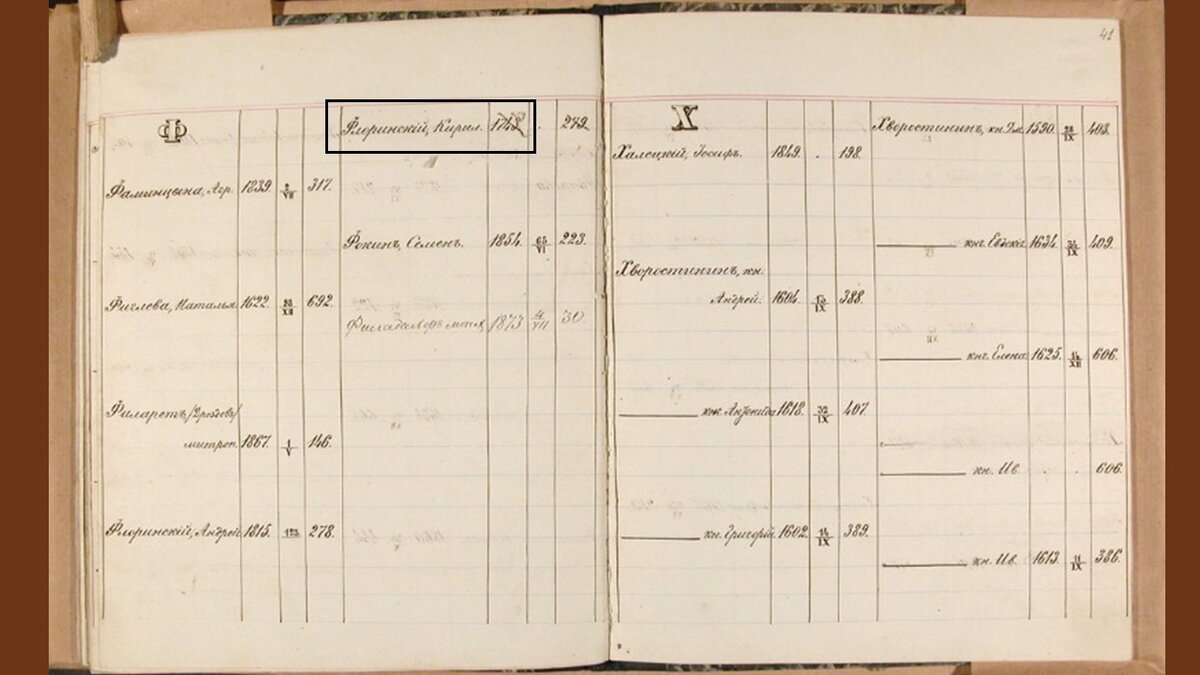 41
Ф
Фаминцына, Агр. 1839. 2/VII 317.
Фиглева, Наталья. 1622. 28/XII 692.
Филаретъ /Дроздовъ/
митроп. 1867. 1/V 146.
Флоринскій, Андрей. 1815. 123 278.
Флоринскій, Кирил. 279.
Фокинъ, Семенъ. 1854. 65/VI 223.
1873 4/VII 30
Х
Халецкій, Іосифъ. 1849. . 198.
Хворостининъ, кн.
Андрей. 1604. 13/IX 388.
——— кн. 1618. 32/IX 407.
——— кн. Григорій 1602. 14/IX 389.
Хворостининъ, кн. 1590. 403.
——— кнг. 1634. 409.
——— кнг. Елена 1625. 14/XII 606.
——— кн. Ив. . . 606.
——— кн. Ив. 1613. 11/IX 386.